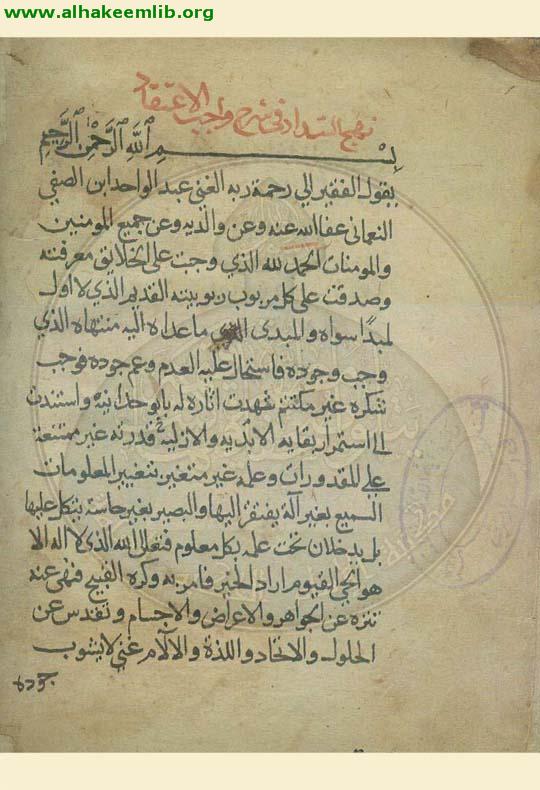 www.alhakeemlib.org
نهج السداد في شرح واجب الاعتقاد
بسم الله الرحمن الرحيم
يقول الفقير الي رحمة ربه الغني عبد الواحد ابن الصفي
النعماني عفا الله عنه وعن والديه وعن جميع المومنين
والمومنات الحمد لله الذي وجبت علي الخلايق معرفته
وصدقت علي كل مربوب ربوبيته القديم الذي لا اول
لمبدا سواه والمبدي الذي ما عداه اليه منتهاه الذي
وجب وجوده فاستحال عليه العدم وعم جوده فوجب
شكره غير مكتتم شهدت اثاره له بالوحدانية واستندت
الي استمرار بقايه الابديه والازلية قدرته غير ممتنعة
علي المقدورات وعلمه غير متغير بتغيير المعلومات
السميع بغير آلة يفتقر اليها والبصير بغير حاسة يتكل عليها
بل يدخلان تحت علمه بكل معلوم فتعالي الله الذي لا اله الا
هو الحي القيوم اراد الخير فامر به وكره القبيح فنهي عنه
تنزه عن الجواهر والاعراض والاجسام وتقدس عن
الحلول والاتحاد واللذة والالام غني لا يشوب
جوده